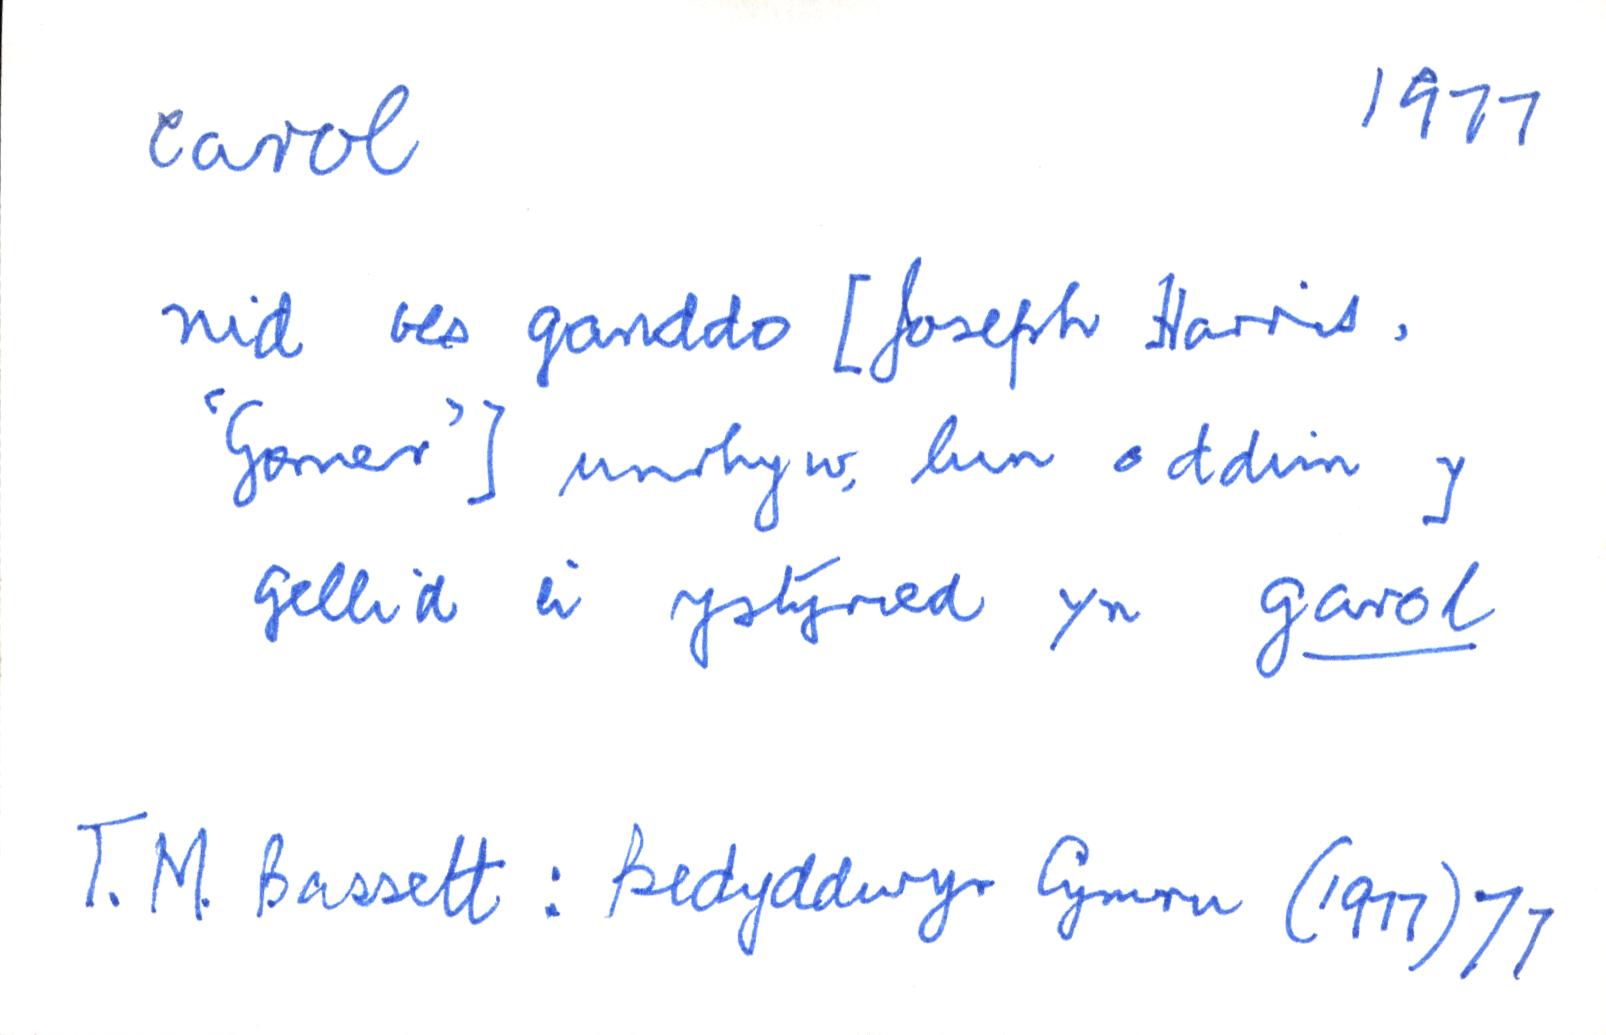 carol 1977
nid oes ganddo [Joseph Harris,
'Gomer'] unrhyw, lun o ddim y
gellid ei ystyried yn garol
T. M. Bassett : Bedyddwyr Cymru (1977) 77